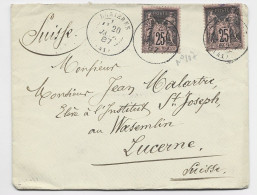 Suisse
25
25
Monsieur
Monsieur Jean Malartre,
Elève à l'Institut St Joseph,
au Wesemlin
Lucerne.
Suisse